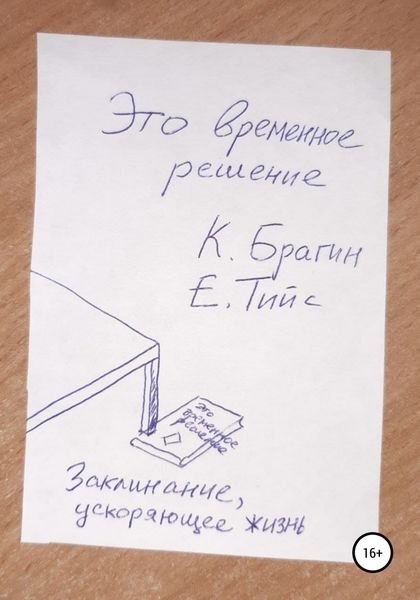 Это временное
решение
К. Брагин
Е. Тийс
это
временное
решение
Заклинание,
ускоряющее жизнь
16+